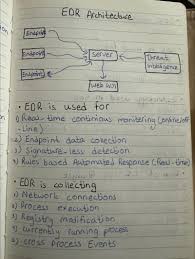 EDR Architecture
Endpoint
Endpoint
Endpoint
Server
Threat
intelligence
Web GUI
• EDR is used for
1) Real-time continious monitoring (online/off
-line)
2) Endpoint data collection
3) Signature-less detection
4) Rules based Automated Response (Real-time)
• EDR is collecting
1) Network connections
2) Process execution
3) Registry modification
4) currently running process
5) cross process Events